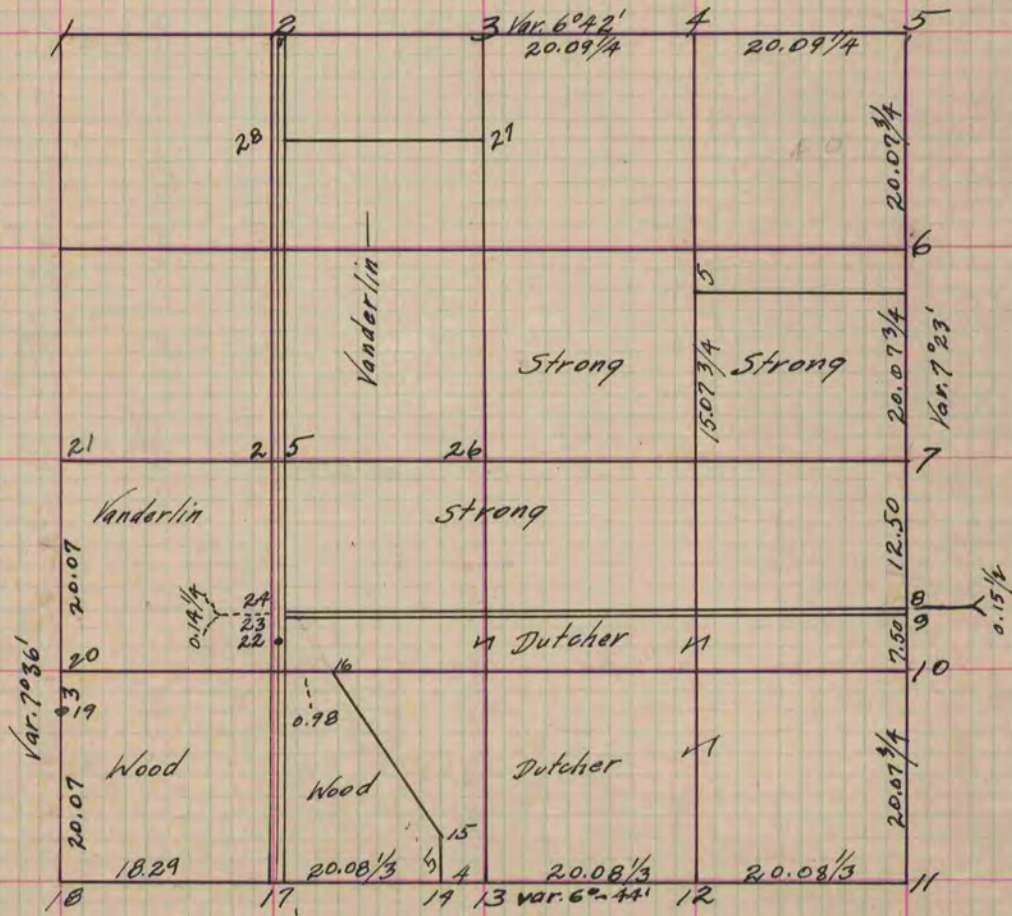 1 2 3 Var. 6°42' 4 5
20.09 1/4 20.09 1/4
20.07 3/4
28 27
6
Vanderlin
5
Strong
15.07 3/4
Strong
20.07 3/4
Var. 7°23'
21 2 5 26 7
Vanderlin
Strong
12.50
20.07
0.14 1/4
24
23
22
8
9
0.15 1/2
Dutcher
7.50
Var. 7°36'
20 16 10
3
19
0.98
Wood
Wood
Dutcher
20.07 3/4
20.07
15
18.29 20.08 1/3 5 4 20.08 1/3 20.08 1/3
18 17 14 13 var. 6°-44' 12 11